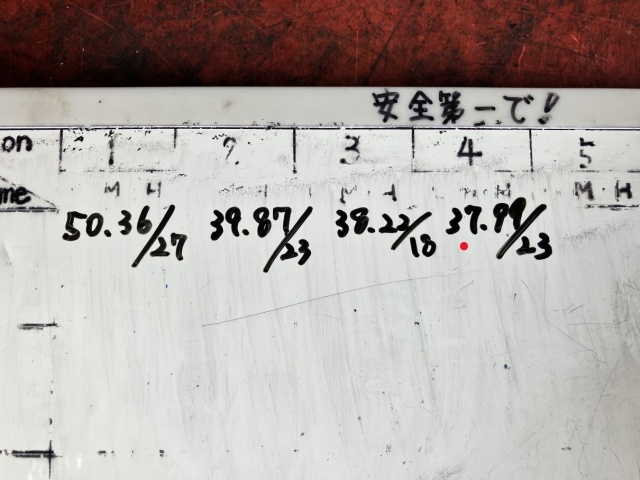 安全第一で!
on 1 2 3 4 5
me M H M H M H M H
50.36/27 39.87/23 38.22/18 37.99/23